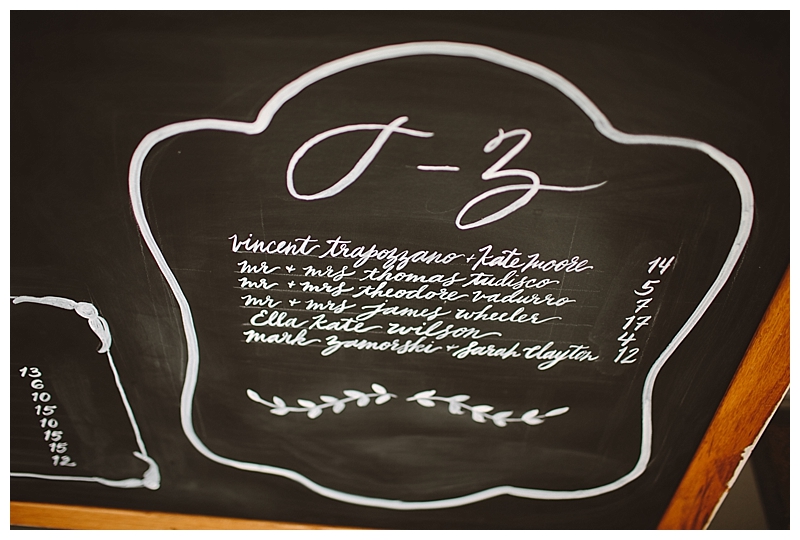 T - Z
vincent trapozzano + Kate Moore 14
mr + mrs thomas tudisco 5
mr + mrs theodore vadurro 7
mr + mrs James wheeler 17
Ella Kate wilson 4
mark zamorski + Sarah Clayton 12
13
6
10
15
10
15
15
12